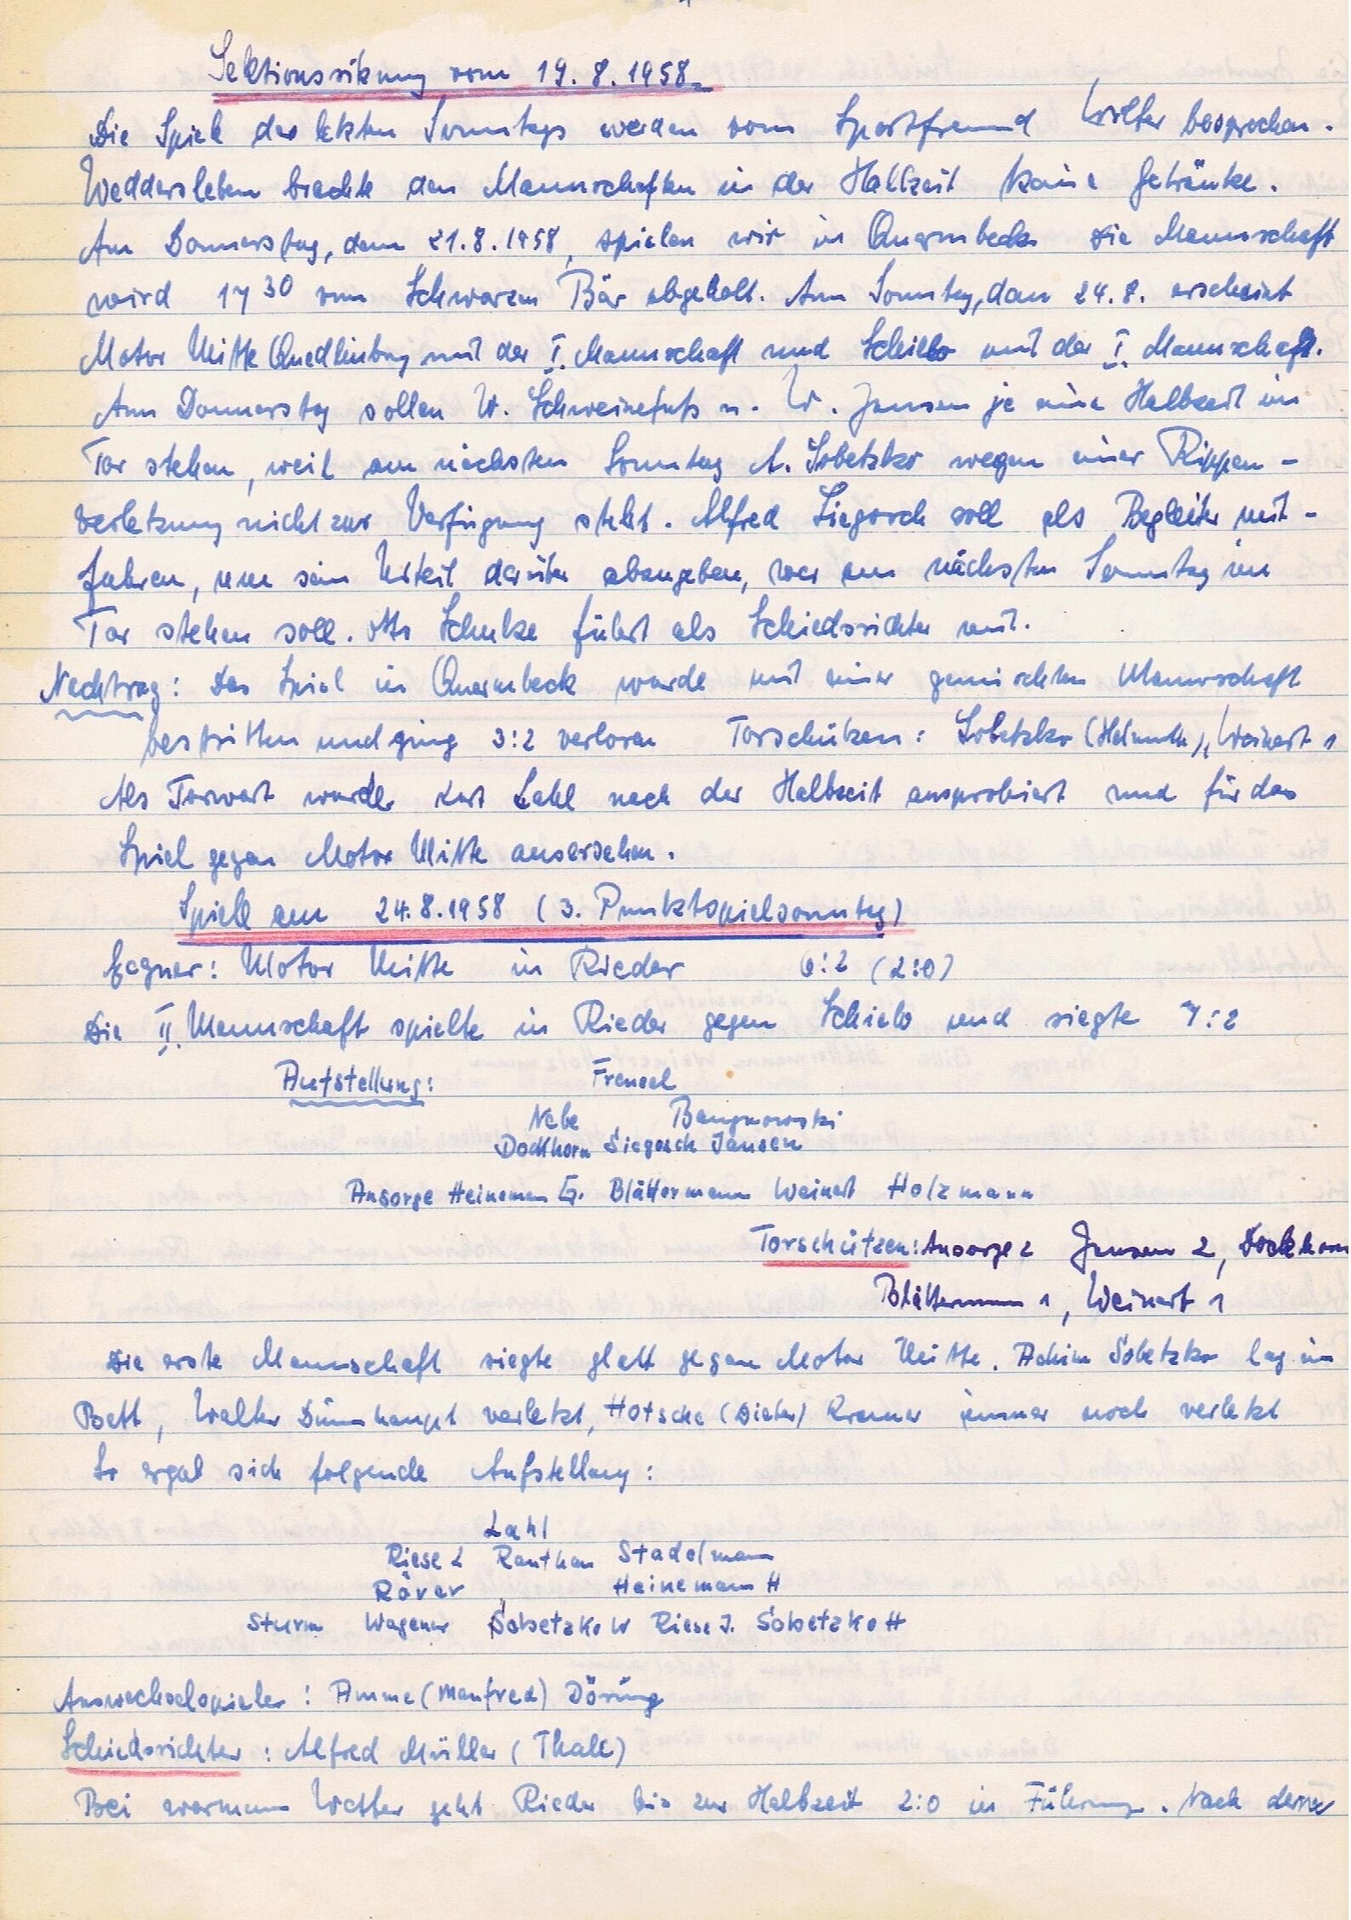 Sektionssitzung vom 19.8.1958
Die Spiele des letzten Sonntags werden vom Sportfreund Wolter besprochen.
Weddersleben brachte den Mannschaften in der Halbzeit keine Getränke.
Am Donnerstag, dem 21.8.1958, spielen wir in Quarmbeck. Die Mannschaft
wird 17 30 vom Schwarzen Bär abgeholt. Am Sonntag, dem 24.8. erscheint
Motor Mitte Quedlinburg mit der I. Mannschaft und Schielo mit der I. Mannschaft.
Am Donnerstag sollen W. Schweinefuß u. W. Jansen je eine Halbzeit im
Tor stehen, weil am nächsten Sonntag A. Sobetzko wegen einer Rippen-
verletzung nicht zur Verfügung steht. Alfred Siegosch soll als Begleiter mit-
fahren, um sein Urteil darüber abzugeben, wer am nächsten Sonntag im
Tor stehen soll. Otto Schulze fährt als Schiedsrichter mit.
Nachtrag: Das Spiel in Quarmbeck wurde mit einer gemischten Mannschaft
bestritten und ging 3:2 verloren Torschützen: Sobetzko (Helmuth), Weinert 1
Als Torwart wurde Kurt Lahl nach der Halbzeit ausprobiert und für das
Spiel gegen Motor Mitte ausersehen.
Spiele am 24.8.1958 (3. Punktspielsonntag)
Gegner: Motor Mitte in Rieder 6:2 (2:0)
Die II. Mannschaft spielte in Rieder gegen Schielo und siegte 7:2
Aufstellung: Frenzel
Nebe
Dockhorn Siegosch Jansen
Ansorge Heinemann G. Blättermann Weinert Holzmann
Torschützen: Ansorge 2 Jansen 2, Dockhorn
Blättermann 1, Weinert 1
Die erste Mannschaft siegte glatt gegen Motor Mitte. Achim Sobetzko lag im
Bett, Walter Dünnhaupt verletzt, Hotscha (Dieter) Kramer immer noch verletzt
So ergab sich folgende Aufstellung:
Lahl
Riese L Rauthan Stadelmann
Röver Heinemann H
Sturm Wagener Sobetzko W Riese J. Sobetzko H
Auswechselspieler: Amme (Manfred) Döring
Schiedsrichter: Alfred Müller (Thale)
Bei warmem Wetter geht Rieder bis zur Halbzeit 2:0 in Führung. Nach dem